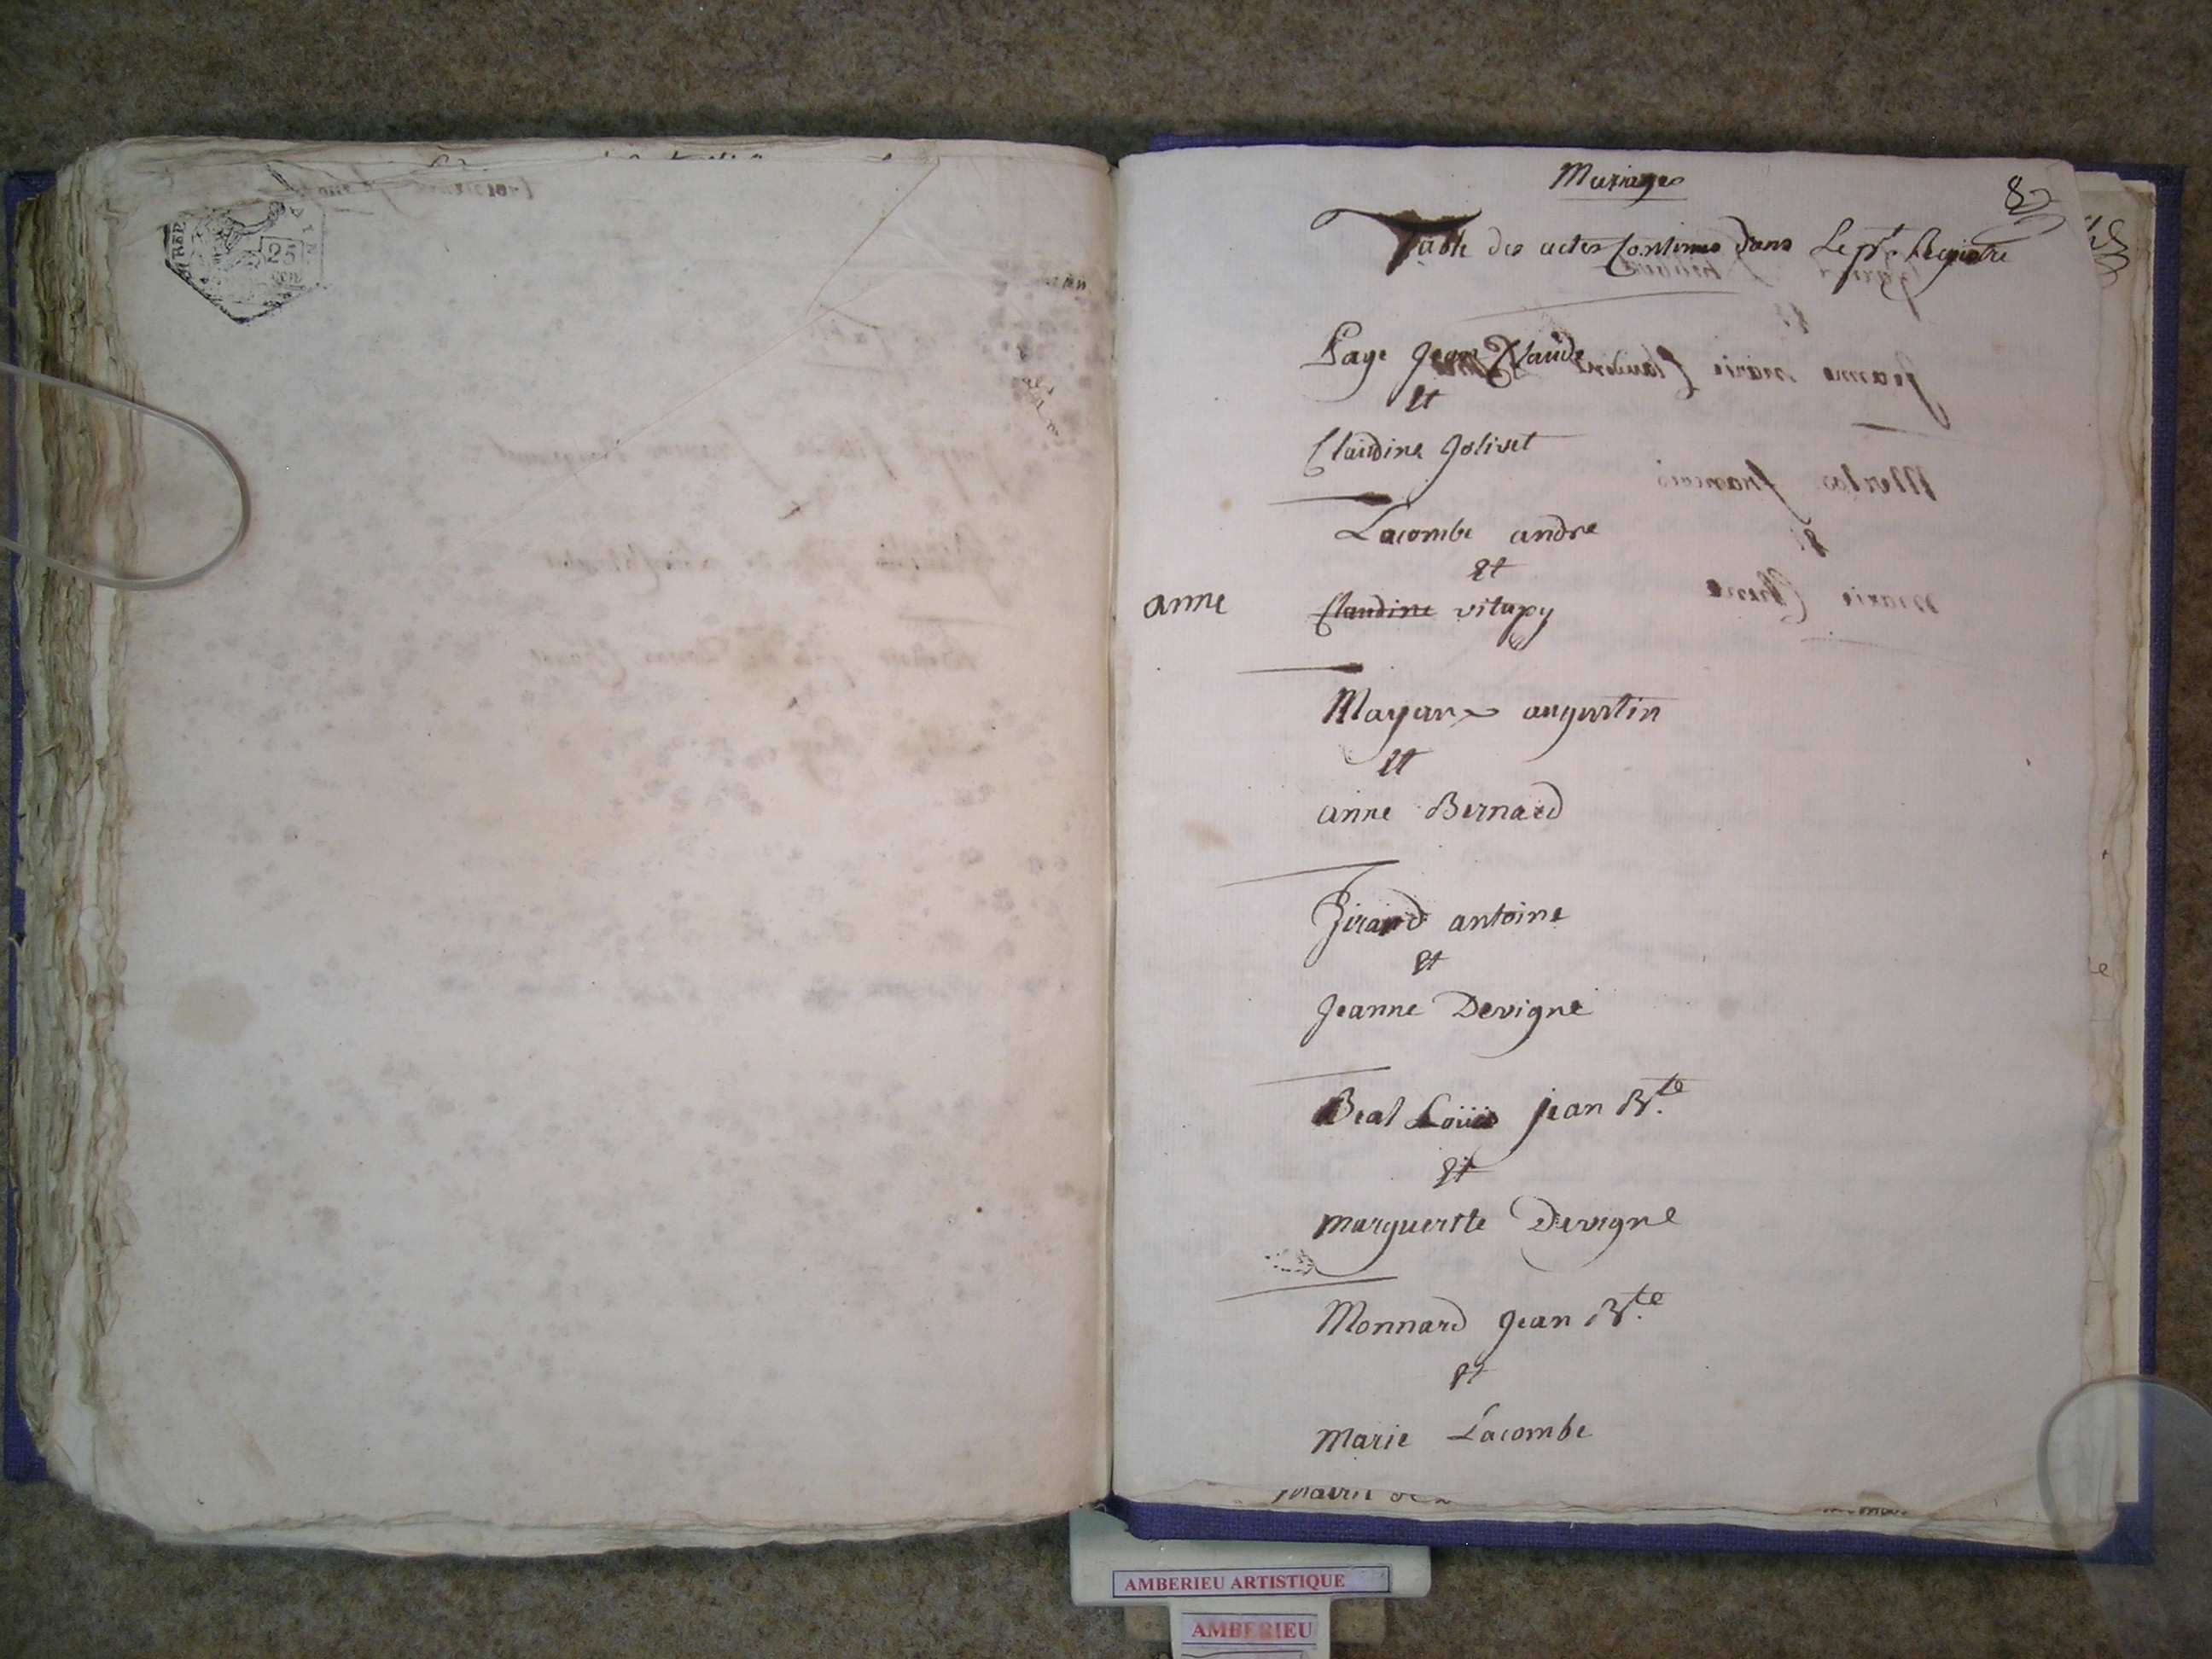 25
cen
Mariages
8
Table des actes Contenus dans Le pr. Registre
Page Jean Claude
et
Claudine Jolivet
Lacombe andre
et
anne Claudine vitupy
Mayanx augustin
et
anne Bernard
Girand antoine
et
Jeanne Devigne
Beal Loüis jean Bte
et
marguerite Devigne
Monnard Jean Bte
et
Marie Lacombe
AMBERIEU ARTISTIQUE
AMBERIEU